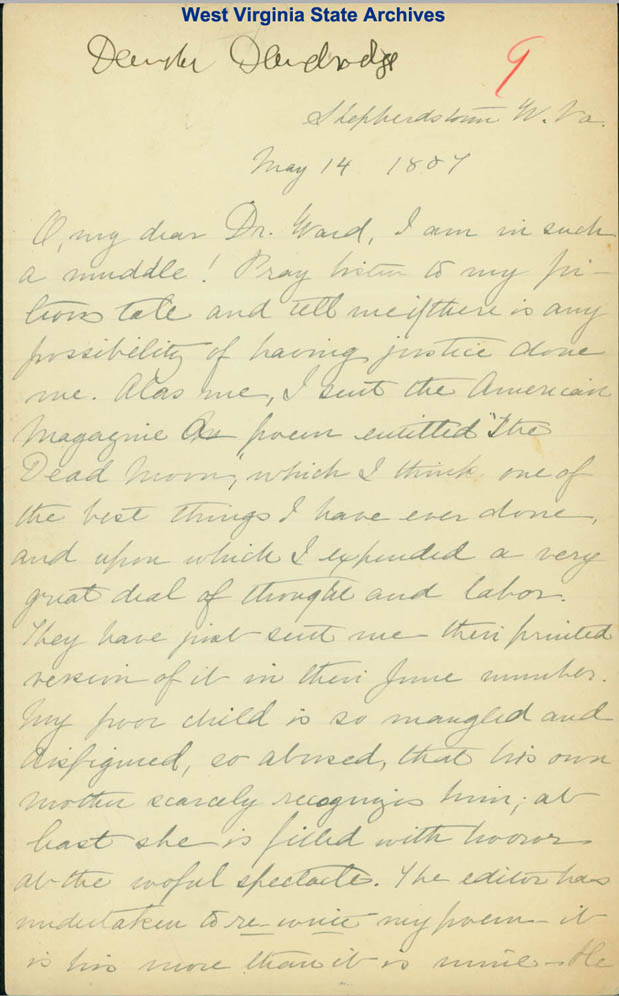 West Virginia State Archives
Danske Dandridge
9
Shepherdstown W. Va.
May 14 1887
O, my dear Dr. Ward, I am in such
a muddle! Pray listen to my pi-
teous tale and tell me if there is any
possibility of having justice done
me. Alas me, I sent the American
Magazine a poem entitled "The
Dead Moon", which I think one of
the best things I have ever done,
and upon which I expended a very
great deal of thought and labor.
They have just sent me their printed
version of it in their June number.
My poor child is so mangled and
disfigured, so abused, that his own
mother scarcely recognizes him; at
least she is filled with horror
at the woful spectacle. The editor has
undertaken to re-write my poem - it
is his more than it is mine - He